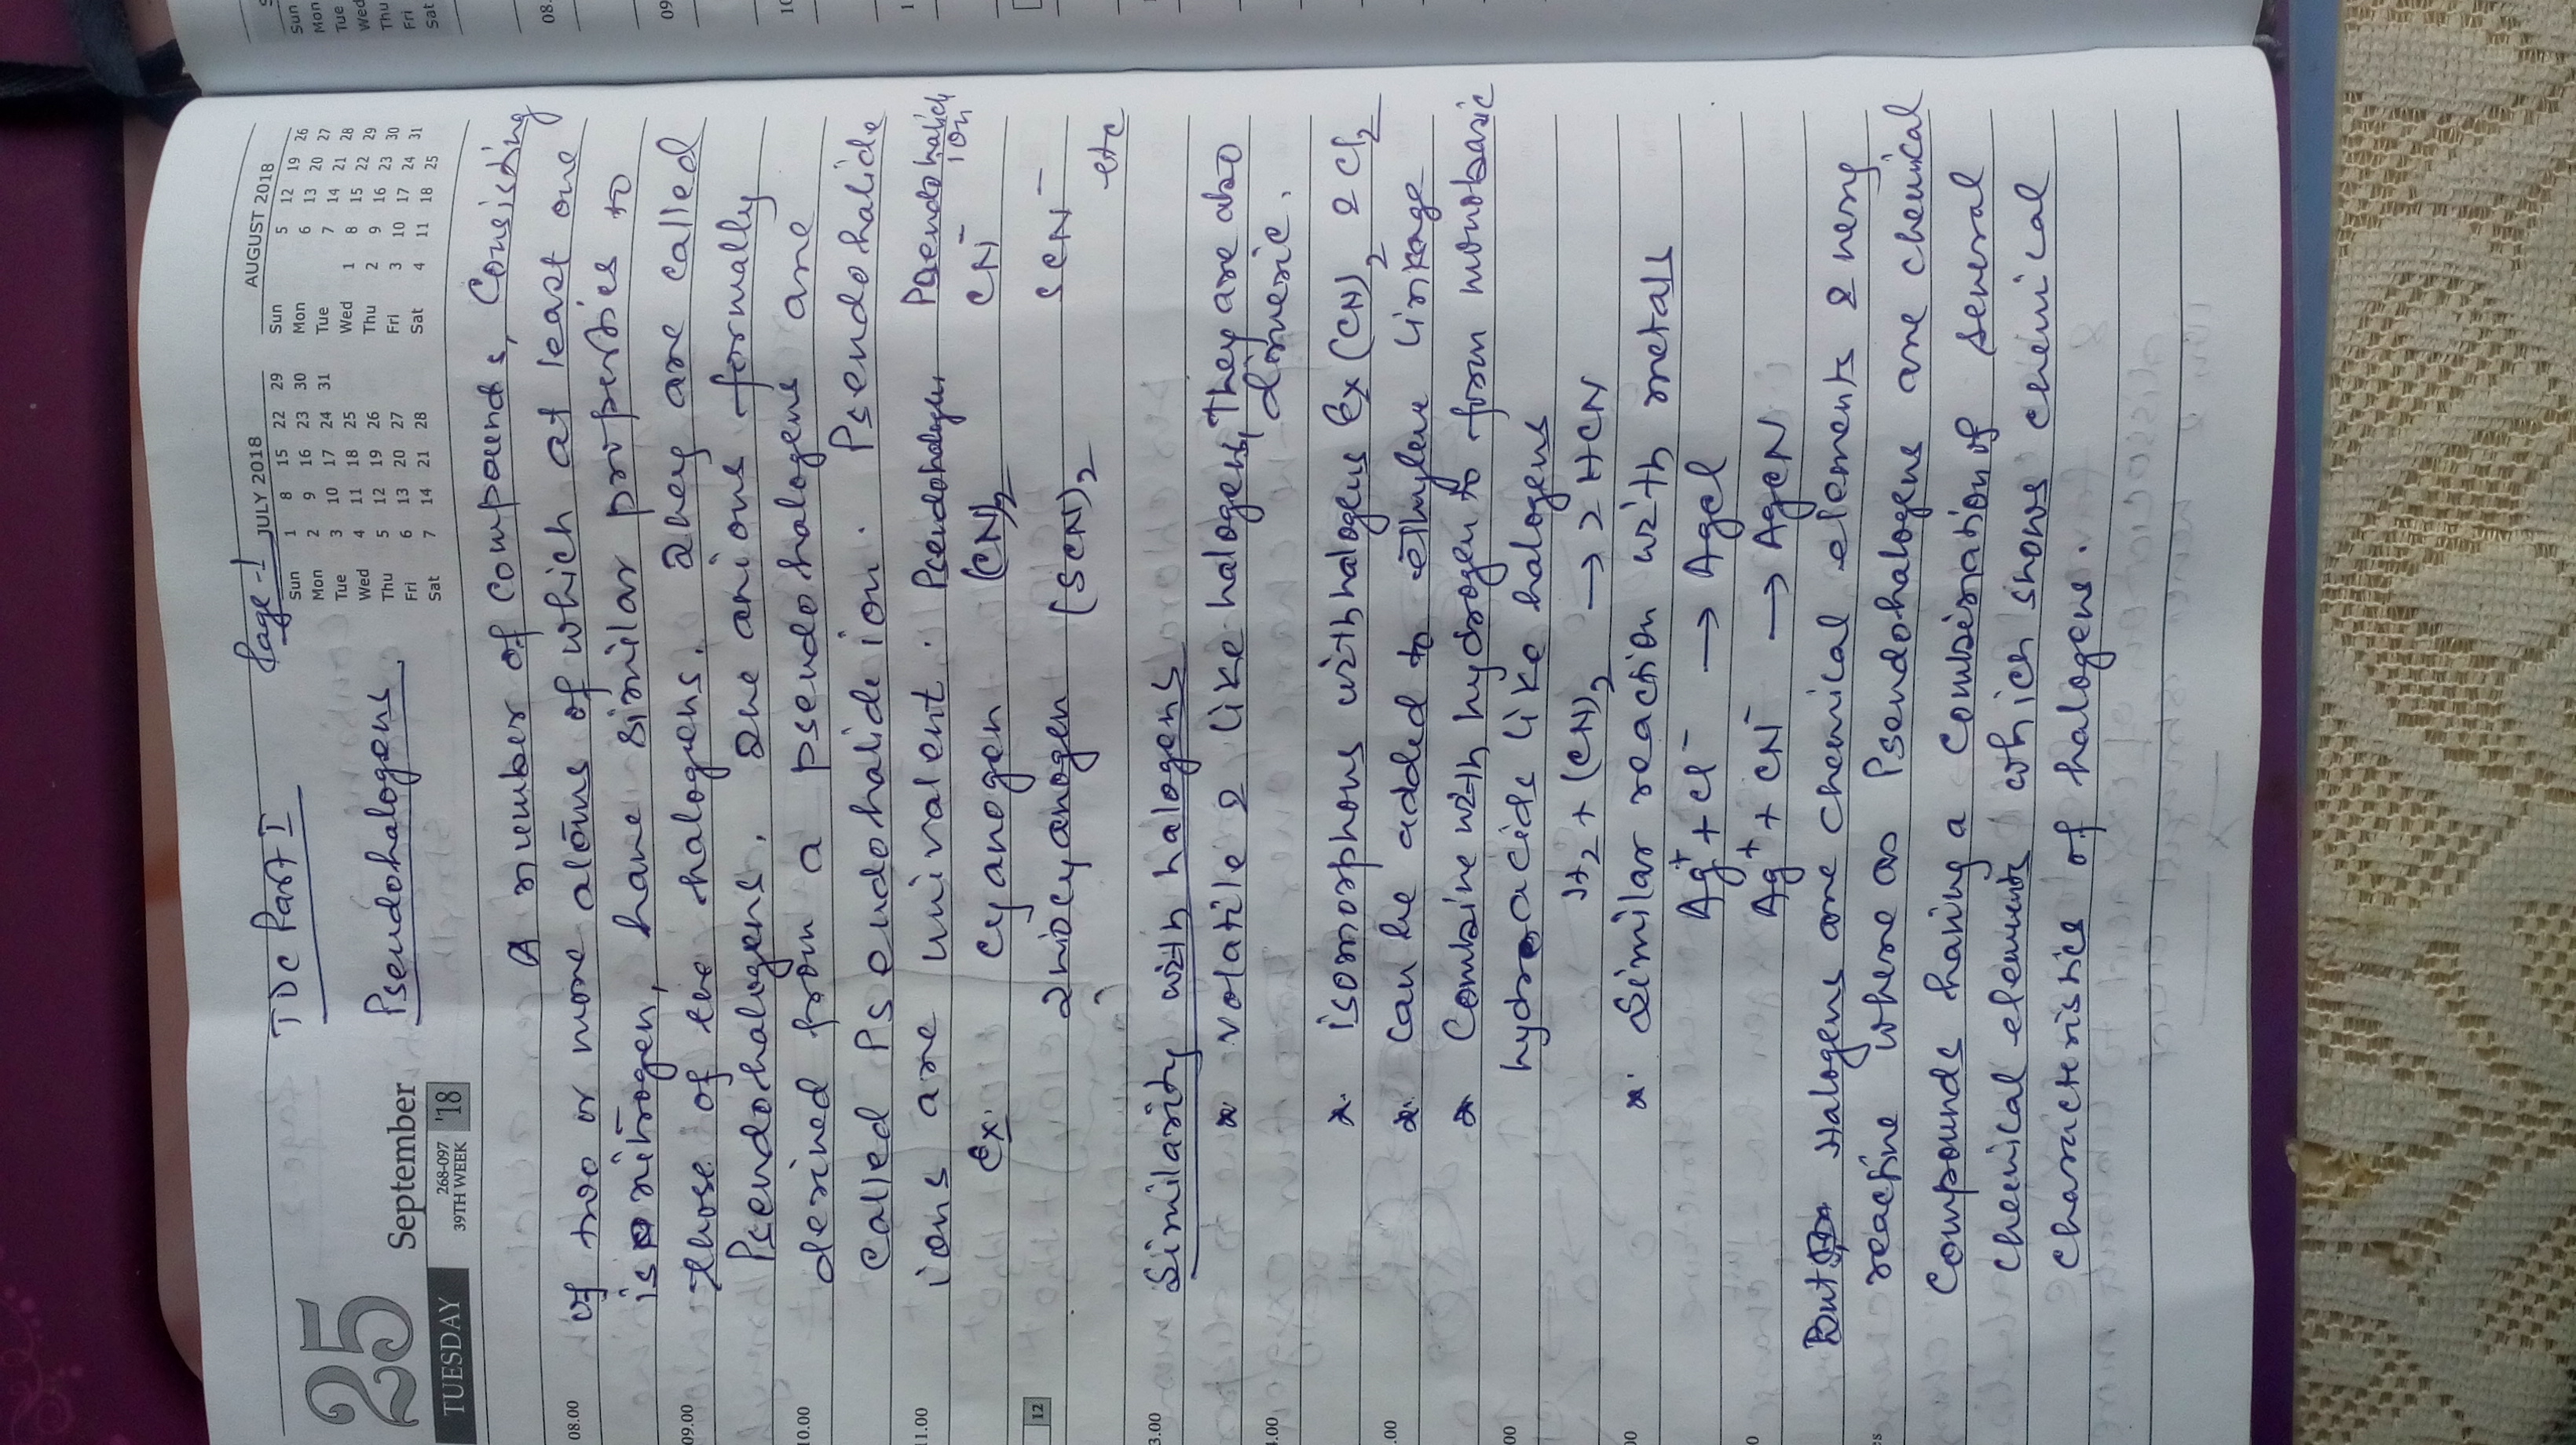 TDC Part I
Page-1
25
September
TUESDAY
268-097
39TH WEEK
'18
JULY 2018
Sun 1 8 15 22 29
Mon 2 9 16 23 30
Tue 3 10 17 24 31
Wed 4 11 18 25
Thu 5 12 19 26
Fri 6 13 20 27
Sat 7 14 21 28
AUGUST 2018
Sun 5 12 19 26
Mon 6 13 20 27
Tue 7 14 21 28
Wed 1 8 15 22 29
Thu 2 9 16 23 30
Fri 3 10 17 24 31
Sat 4 11 18 25
Pseudohalogens
A number of compounds, Consisting
08.00
of two or more atoms of which at least one
is nitrogen, have similar properties to
09.00
those of the halogens. They are called
Pseudohalogens. The anions formally
10.00
derived from a pseudohalogens are
called Pseudohalide ion. Pseudohalide
11.00
ions are univalent. Pseudohalogen Pseudohalide ion
Ex. Cyanogen (CN)2 CN-
12
Thiocyanogen (SCN)2 SCN-
etc
Similarity with halogens
* volatile & like halogens, They are also
dimeric.
* isomorphous with halogens Ex (CN)2 & Cl2
* can be added to ethylene linkage
* Combine with hydrogen to form monobasic
hydroacids like halogens
H2 + (CN)2 → 2HCN
* Similar reaction with metals
Ag+ + Cl- → AgCl
Ag+ + CN- → AgCN
But Halogens are chemical elements & very
reactive where as Pseudohalogens are chemical
Compounds having a combination of several
chemical elements which shows chemical
characteristics of halogens.